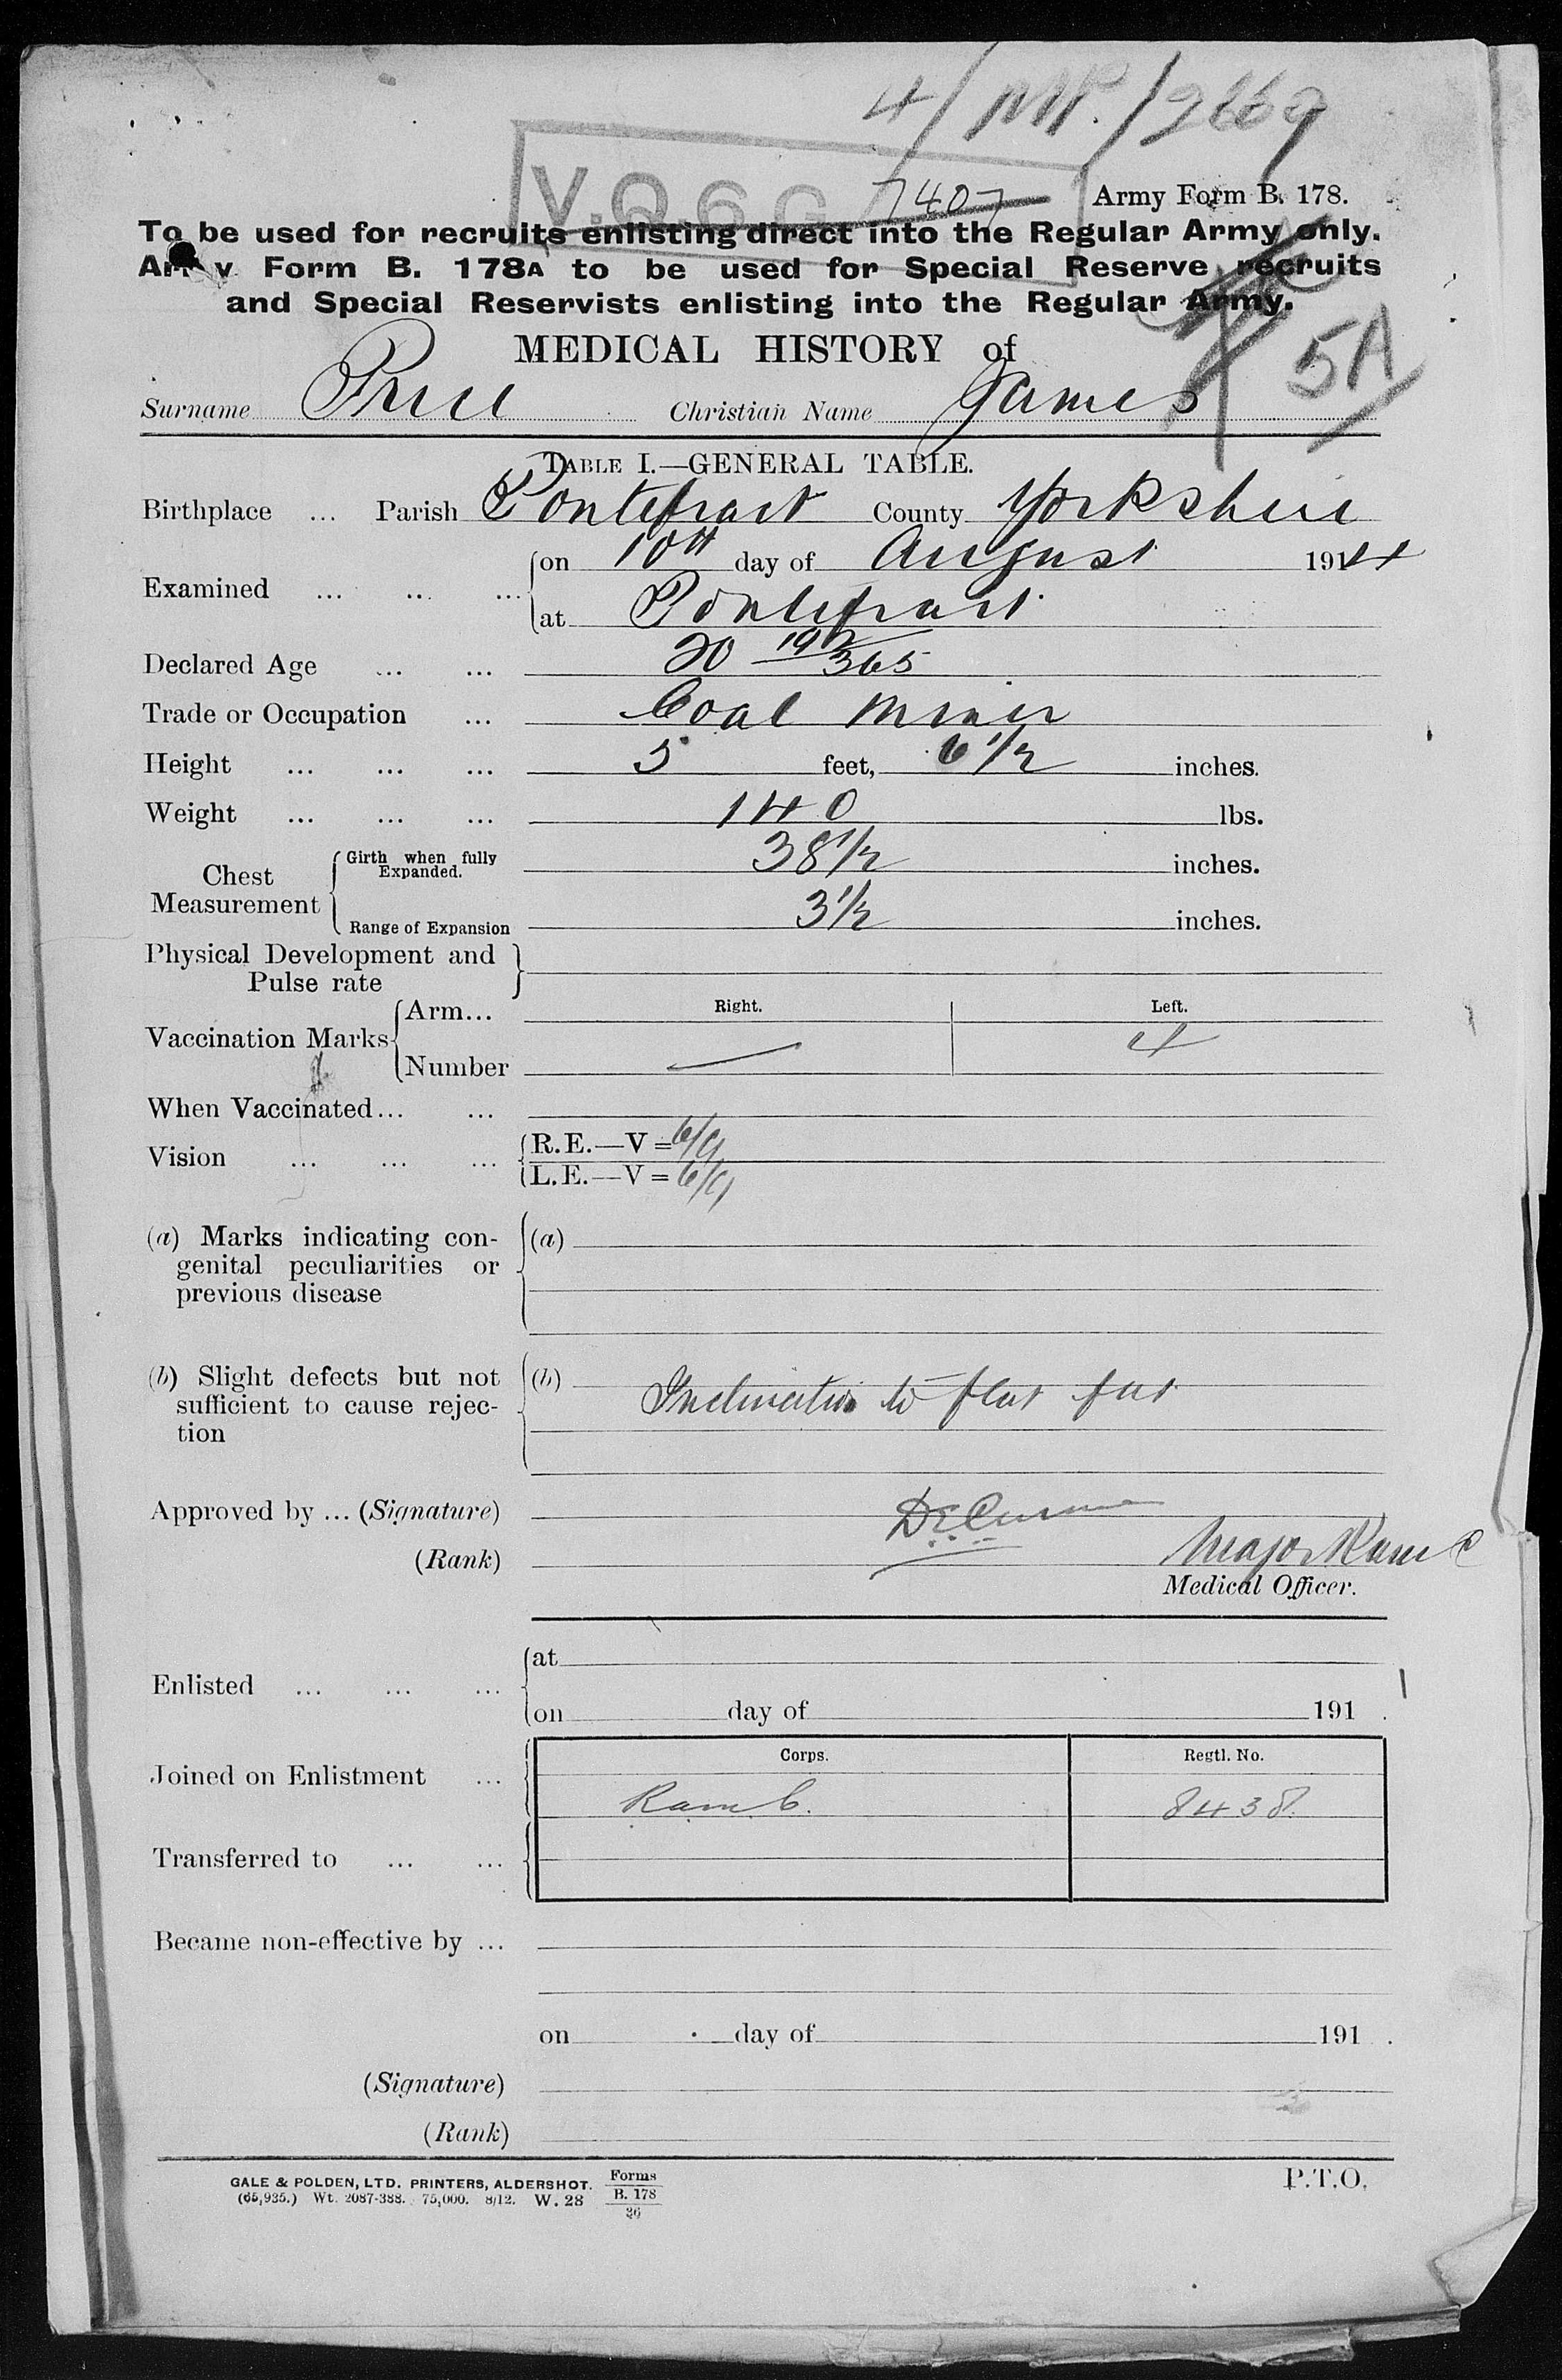 4/MP./2669
V.O.6.G 7407
Army Form B. 178.
To be used for recruits enlisting direct into the Regular Army only.
Army Form B. 178A to be used for Special Reserve recruits
and Special Reservists enlisting into the Regular Army.
5A
MEDICAL HISTORY of
Surname Price Christian Name James
TABLE I.—GENERAL TABLE.
Birthplace ... Parish Pontefract County Yorkshire
Examined ... ... ... on 10th day of August 1914
at Pontefract
Declared Age ... ... 20 192/365
Trade or Occupation ... Coal Miner
Height ... ... ... 5 feet, 6 1/2 inches.
Weight ... ... ... 140 lbs.
Chest Measurement Girth when fully Expanded. 38 1/2 inches.
Range of Expansion 3 1/2 inches.
Physical Development and Pulse rate
Vaccination Marks Arm... Right. Left.
Number — 4
When Vaccinated... ...
Vision ... ... ... R.E.—V = 6/9
L.E.—V = 6/9
(a) Marks indicating con- (a)
genital peculiarities or
previous disease
(b) Slight defects but not (b) Inclination to flat feet
sufficient to cause rejec-
tion
Approved by ... (Signature)
(Rank) Major RAMC
Medical Officer.
Enlisted ... ... ... at
on day of 191 .
Corps. Regtl. No.
Joined on Enlistment ... R.A.M.C. 8438.
Transferred to ... ...
Became non-effective by ...
on day of 191 .
(Signature)
(Rank)
GALE & POLDEN, LTD. PRINTERS, ALDERSHOT. Forms
(65,935.) Wt. 2087-388. 75,000. 8/12. W. 28 B. 178
36
P.T.O.